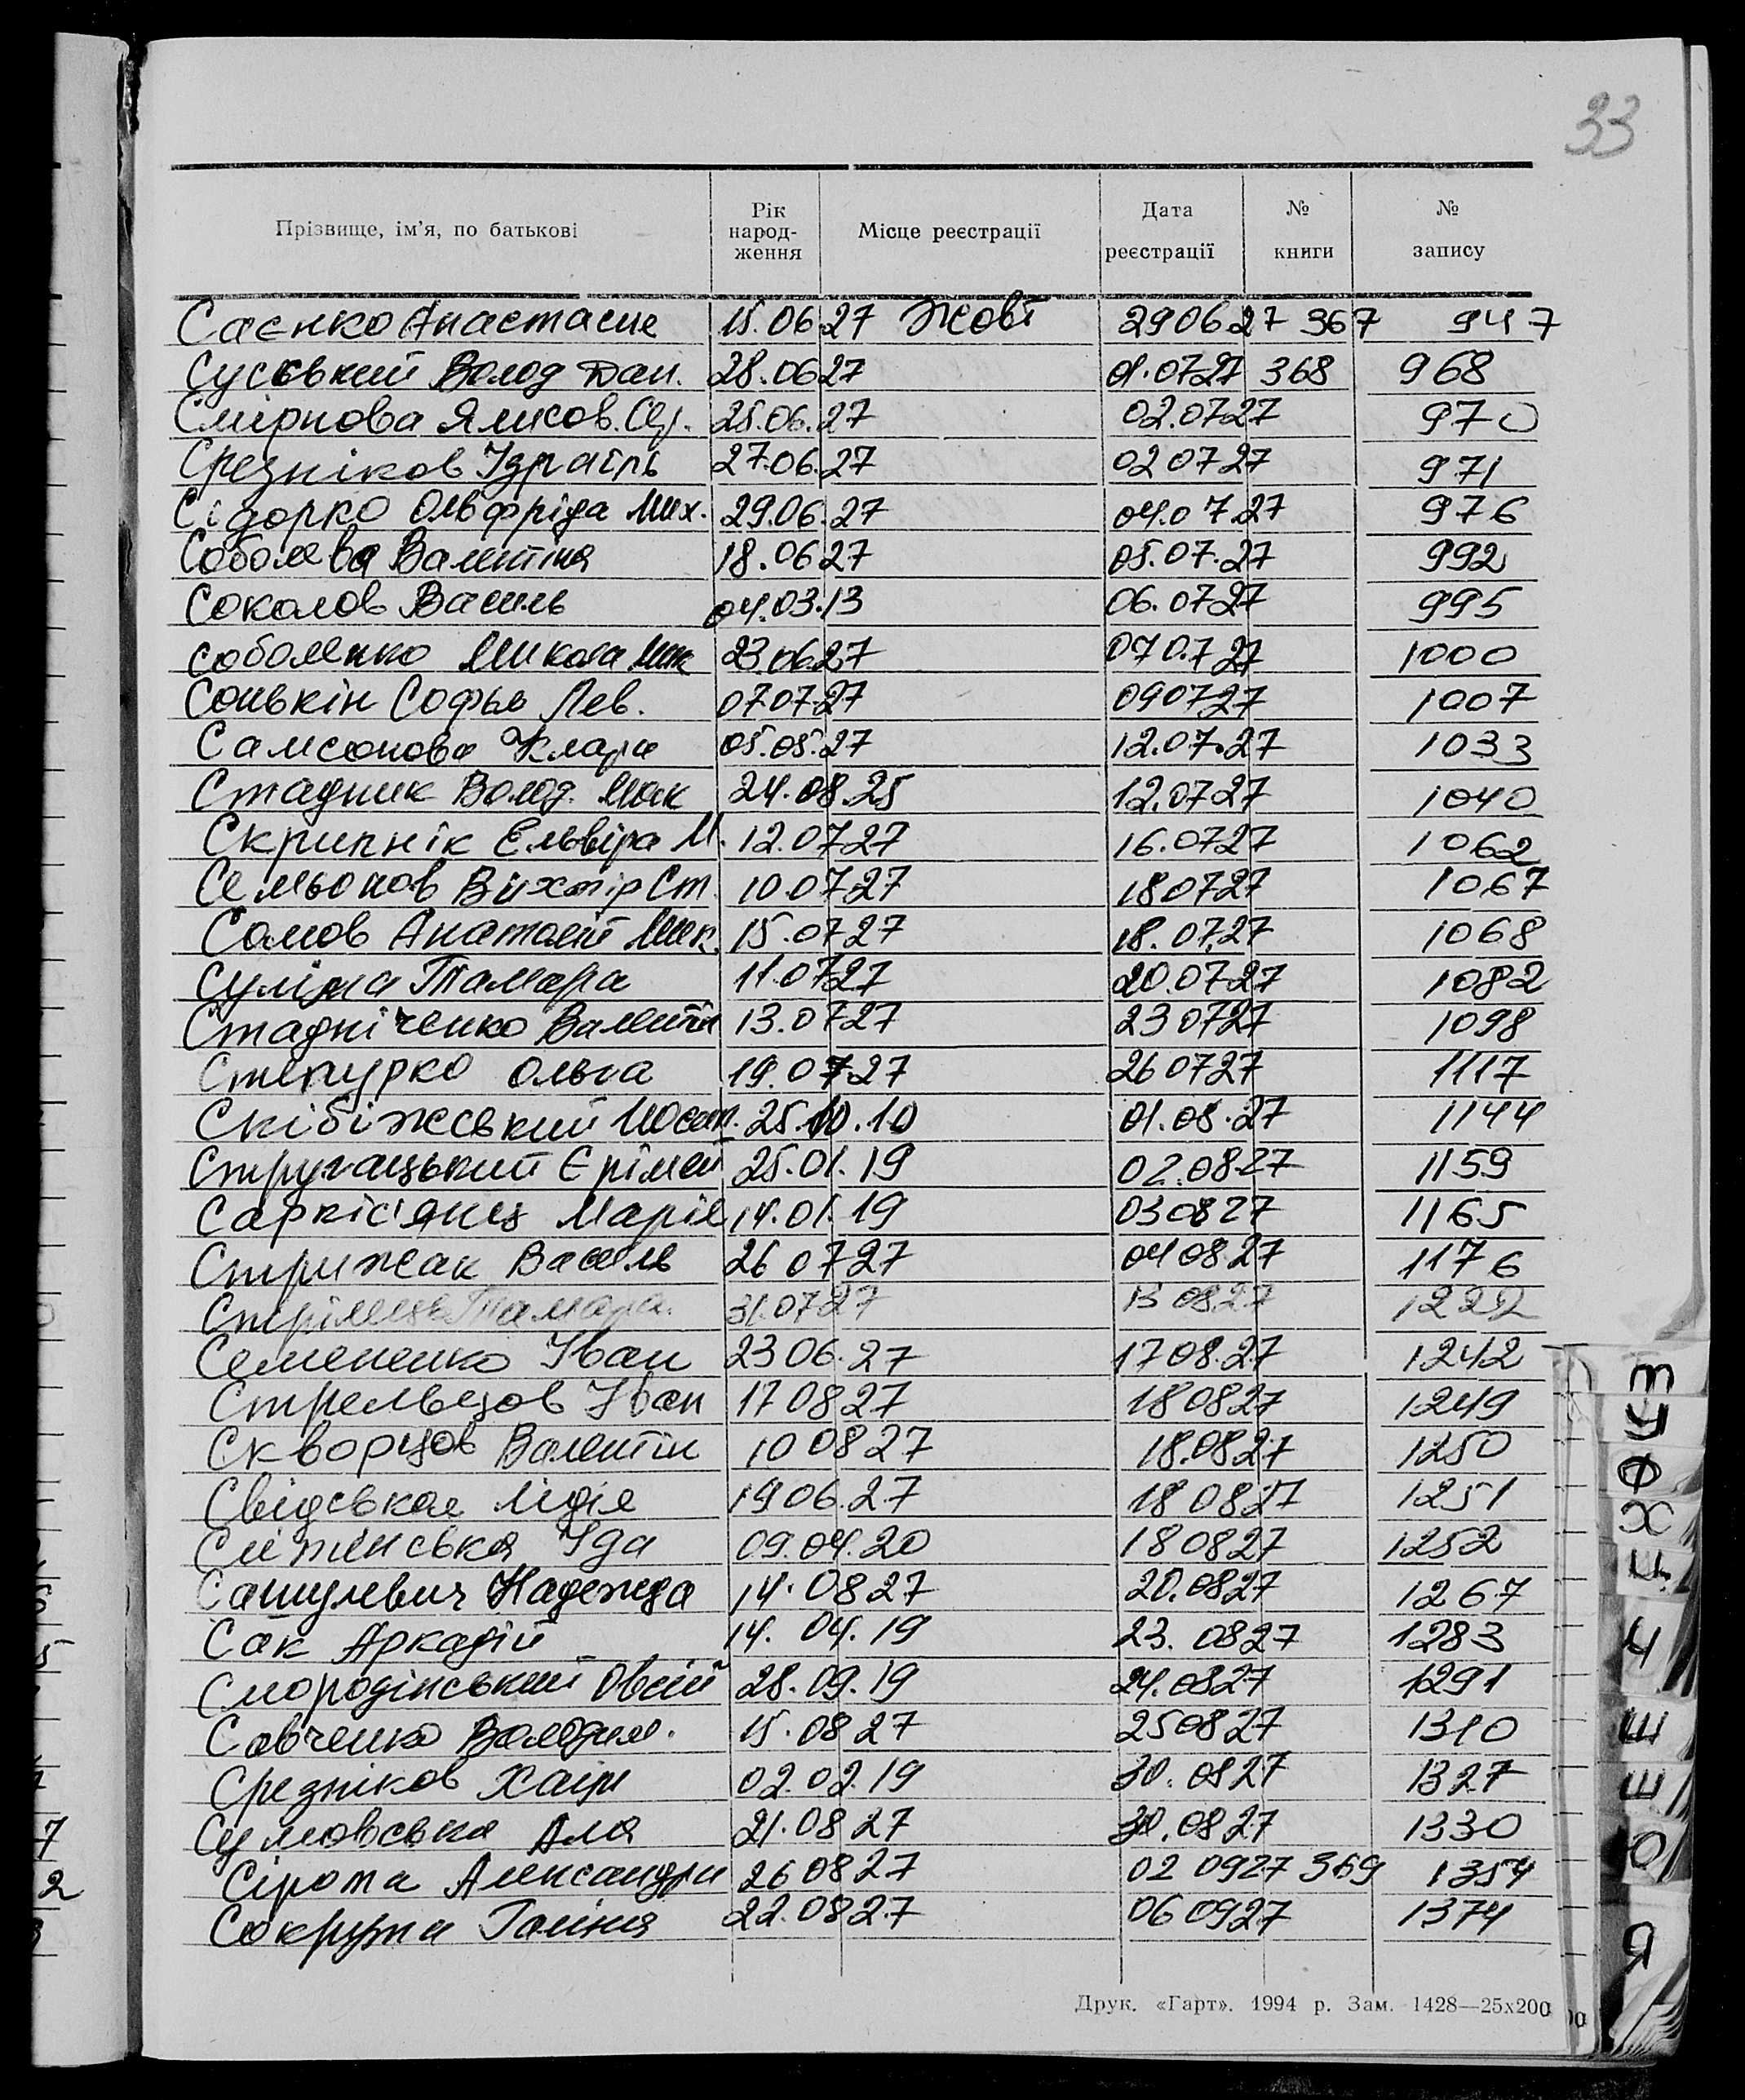 33
Прізвище, ім'я, по батькові Рік народження Місце реєстрації Дата реєстрації № книги № запису
Саєнко Анастасие 15.06.27 Жовт 29 06 27 367 947
Сусський Волод Дан. 28.06 27 01.07 27 368 968
Смірнова 25.06.27 02.07 27 970
Срезніков Ізраїль 27.06.27 02 07 27 971
Сідорко Ольфріда Мих. 29.06.27 04.07.27 976
Соболева Валентина 18.06 27 05.07.27 992
Соколов Василь 04.03.13 06.07 27 995
Соболенко Микола Мик 23.06.27 07 0.7 27 1000
Сонькін Софья Лев. 07.07.27 09 07 27 1007
Самсонова Клара 05.05.27 12.07.27 1033
Стадник Волод. Мак 24.08.25 12.07 27 1040
Скрипнік Ельвіра М. 12.07 27 16.07 27 1062
Семьонов Віхтір Ст. 10.07 27 18 07 27 1067
Сомов Анатолій Мик. 15.07 27 18.07.27 1068
Суліма Тамара 11.07 27 20.07.27 1082
Стадніченко Валентін 13.07 27 23 07 27 1098
Степурко Ольга 19.07.27 26 07 27 1117
Скібіжський Йосип. 25.10.10 01.08.27 1144
Стругацький Єрімей 25.01.19 02.08.27 1159
Саркіс'янц Маріе 14.01.19 03 08 27 1165
Стрижак Василь 26 07 27 04 08.27 1176
Стрілець Тамара. 31.07 27 13 08.27 1222
Семененко Іван 23 06.27 17 08.27 1242
Стрельцов Іван 17 08 27 18 08 27 1249
Скворцов Валентін 10 08 27 18.08 27 1250
Свідськая Лідіе 19 06.27 18 08 27 1251
Ида 09.04.20 18 08 27 1252
Сашулевич Надежда 14.08 27 20.08.27 1267
Сак Аркадій 14.04.19 23.08 27 1283
Смородінський Овсій 28.09.19 24.08 27 1291
Савченко Володим. 15.08 27 25 08 27 1310
Срезніков Хаім 02.02.19 30.08 27 1327
Сумовська Ала 21.08 27 30.08 27 1330
Сірота Александра 26 08 27 02 09 27 369 1354
Сокрута Галіна 22.08 27 06 09 27 1374
Друк. «Гарт». 1994 р. Зам. 1428—25х200
Т
У
Ф
Х
Ц
Ч
Ш
Щ
Ю
Я